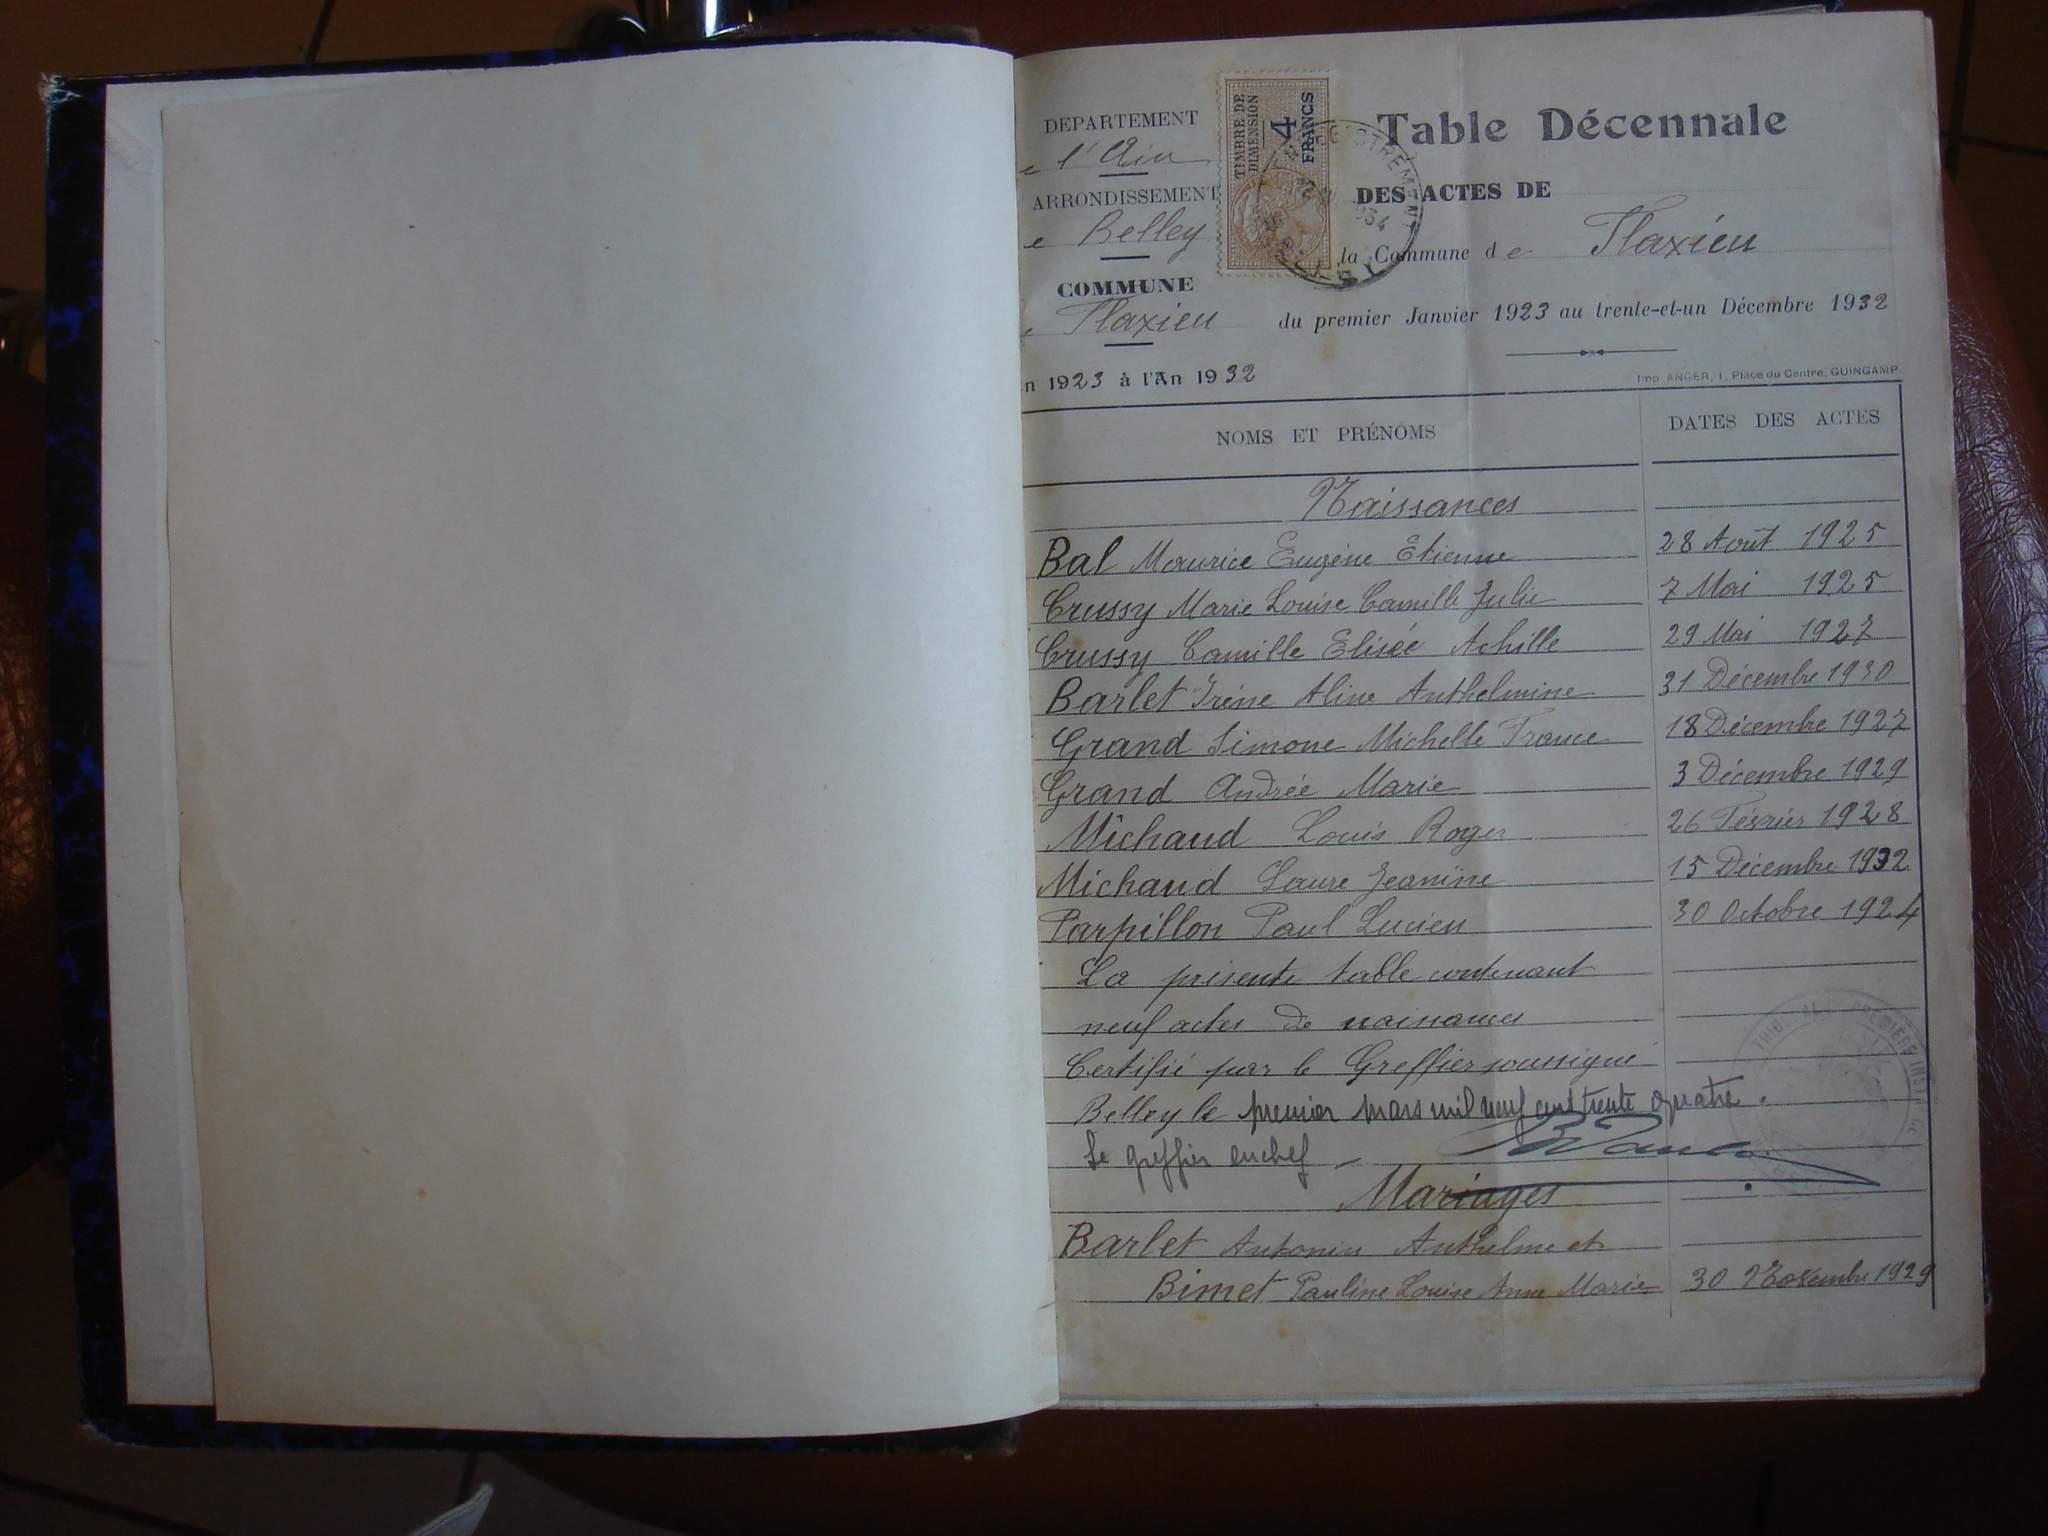 DEPARTEMENT
e l'Ain
ARRONDISSEMENT
e Belley
COMMUNE
e Flaxieu
n 1923 à l'An 1932
TIMBRE DE DIMENSION
4 FRANCS
Table Décennale
DES ACTES DE
la Commune de Flaxieu
du premier Janvier 1923 au trente-et-un Décembre 1932
Imp. ANGER, 1, Place du Centre, GUINGAMP
NOMS ET PRÉNOMS DATES DES ACTES
Naissances
Bal Maurice Eugène Etienne 28 Août 1925
Crussy Marie Louise Camille Julie 7 Mai 1925
Crussy Camille Elisée Achille 29 Mai 1927
Barlet Irène Aline Anthelmine 31 Décembre 1930
Grand Simone Michelle France 18 Décembre 1927
Grand Andrée Marie 3 Décembre 1929
Michaud Louis Roger 26 Février 1928
Michaud Laure Jeanine 15 Décembre 1932
Parpillon Paul Lucien 30 Octobre 1924
La présente table contenant
neuf actes de naissances
Certifié par le Greffier soussigné
Belley le premier mars mil neuf cent trente quatre.
Le greffier en chef
Mariages
Barlet Antonin Anthelme et
Bimet Pauline Louise Anne Marie 30 Novembre 1929